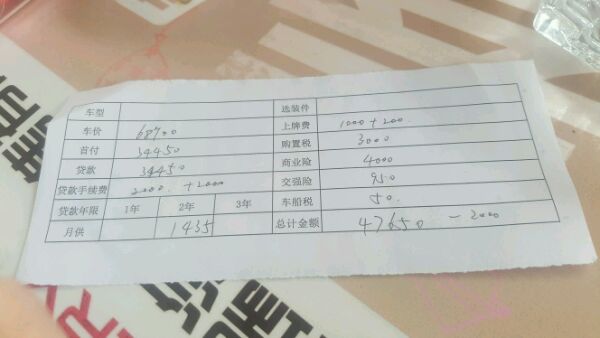 车型 选装件
车价 68900 上牌费 1000 + 200
首付 34450 购置税 3000
贷款 34450 商业险 4000
贷款手续费 2000 + 2000 交强险 950
贷款年限 1年 2年 3年 车船税 50
月供 1435 总计金额 47650 - 2000